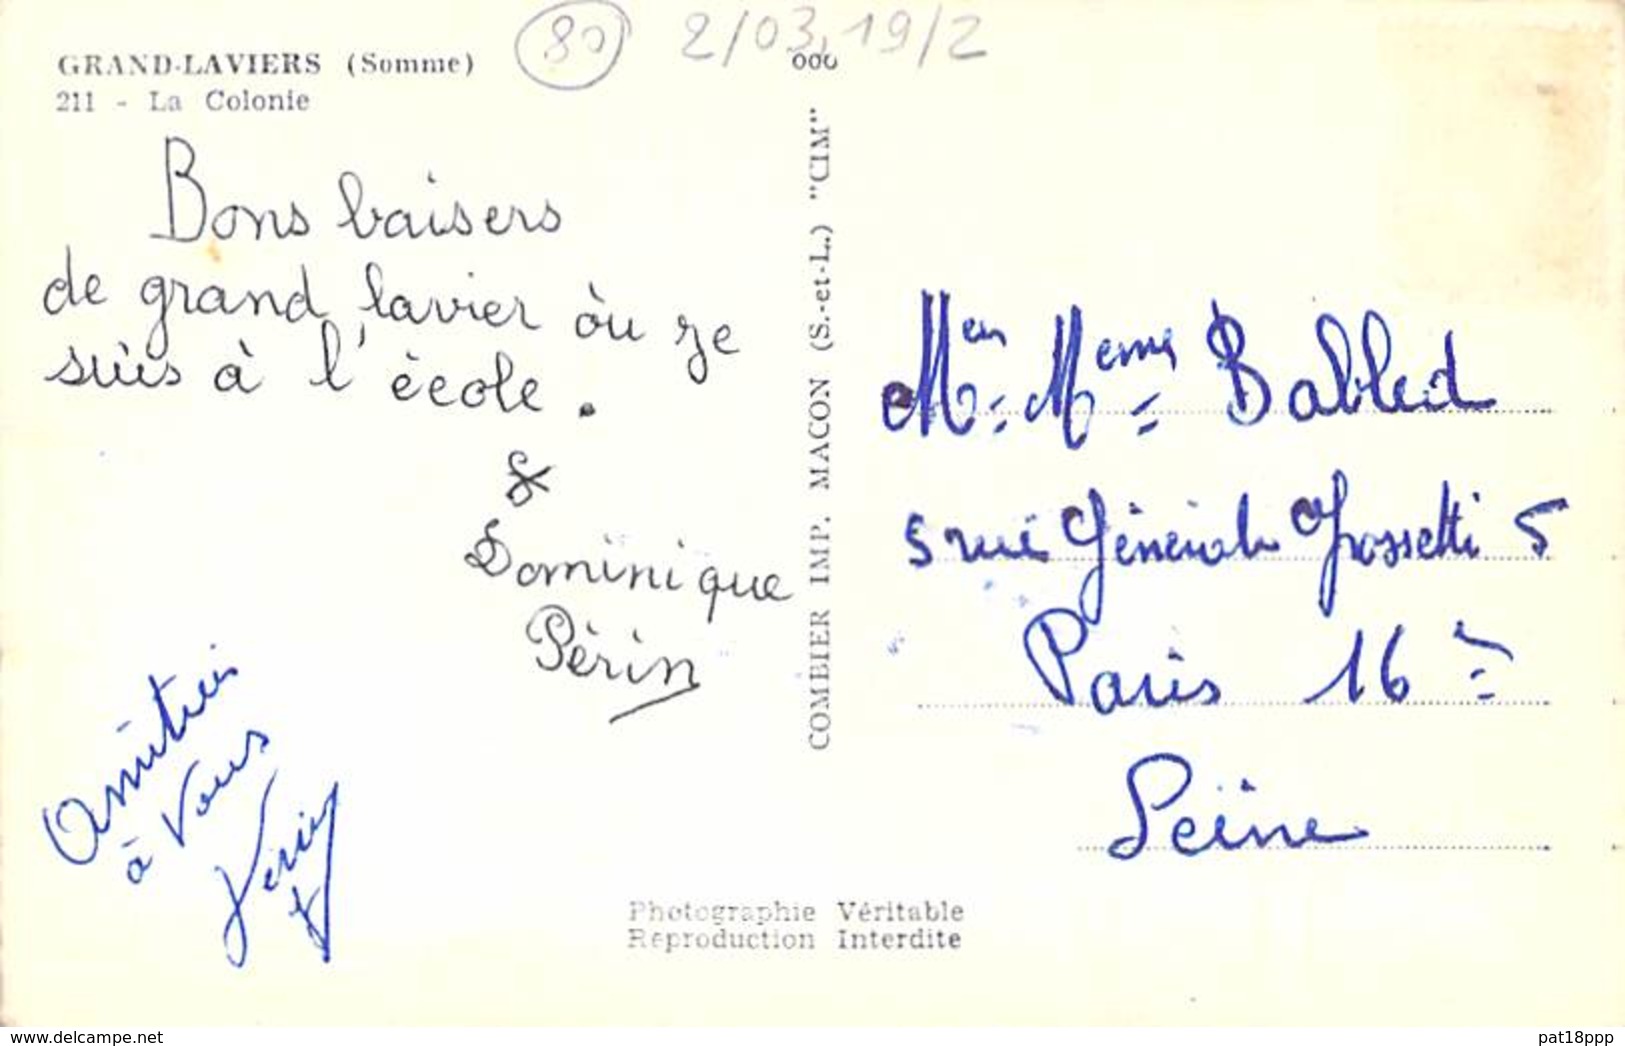 GRAND-LAVIERS (Somme)
211 - La Colonie
80
2/03.19/2
Bons baisers
de grand lavier òu ze
suis à l'école.
Dominique
Périn
à vous
COMBIER IMP. MACON (S.-et-L.) "CIM"
Babled
5 rue Général Grossetti 5
Paris 16
Seine
Photographie Véritable
Reproduction Interdite
www.delcampe.net
pat18ppp